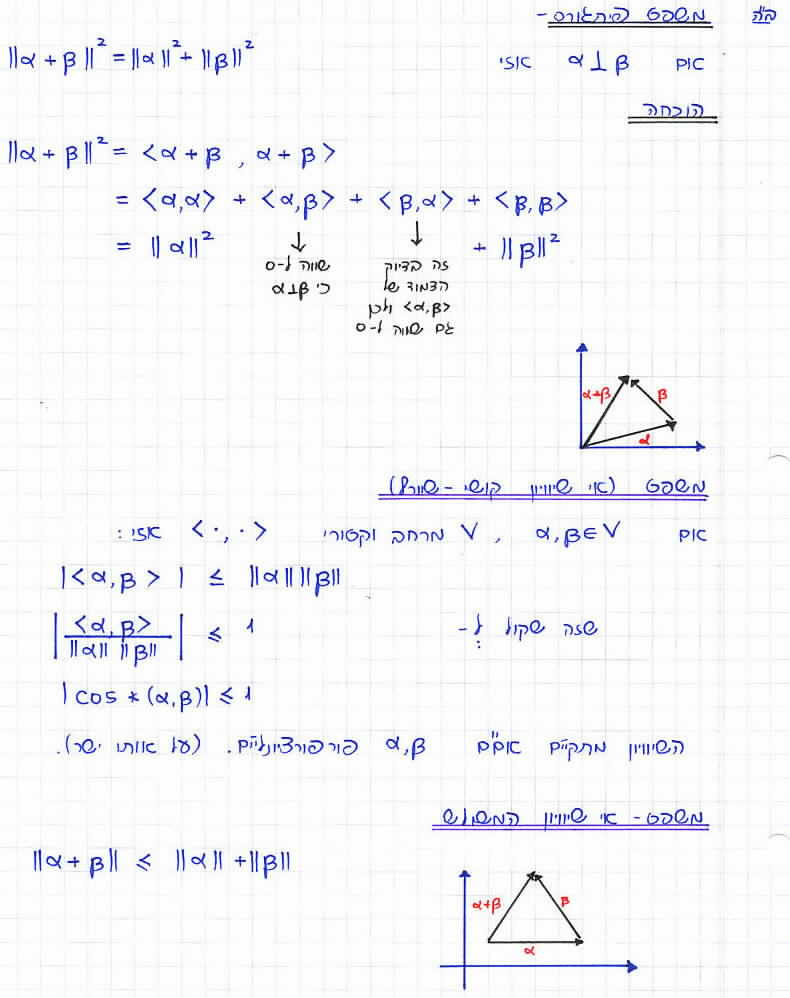 ב"ה
משפט פיתגורס-
אם α⊥β אזי ||α+β||² = ||α||² + ||β||²
הוכחה
||α+β||² = <α+β, α+β>
= <α,α> + <α,β> + <β,α> + <β,β>
= ||α||² ↓ ↓ + ||β||²
שווה ל-0
כי α⊥β
זה בדיוק
הצמוד של
<α,β> ולכן
גם שווה ל-0
α+β β
α
משפט (אי שיוויון קושי-שוורץ)
אם α,β∈V , V מרחב וקטורי <·,·> אזי:
|<α,β>| ≤ ||α|| ||β||
שזה שקול ל-:
|<α,β> / ||α|| ||β||| ≤ 1
|cos*(α,β)| ≤ 1
השיוויון מתקיים אם"ם α,β פורפורציונליים. (על אותו ישר).
משפט- אי שיוויון המשולש
||α+β|| ≤ ||α|| + ||β||
α+β β
α